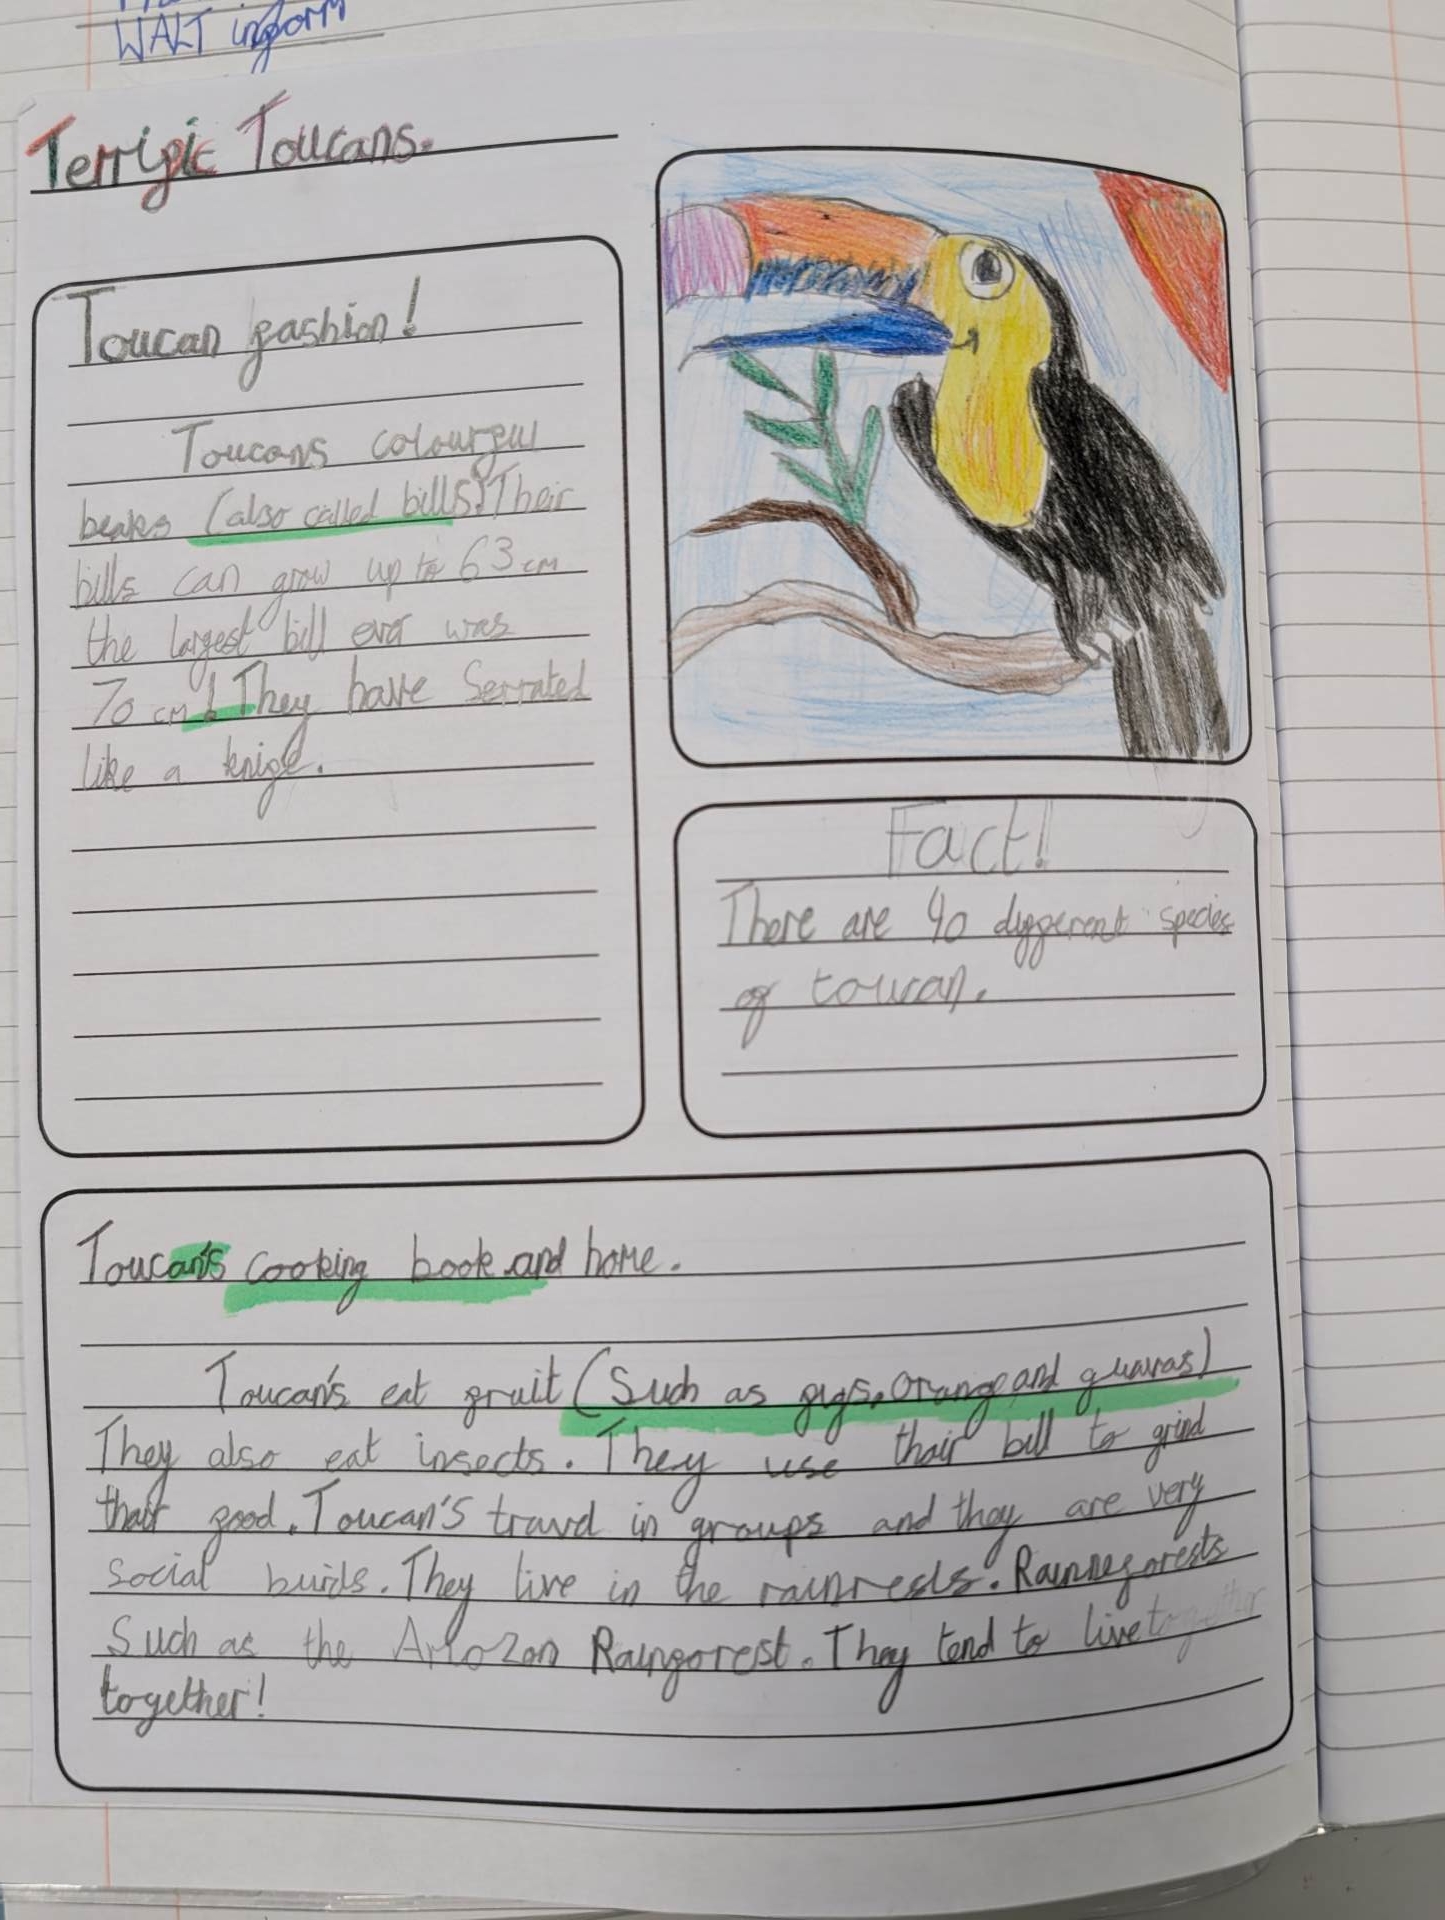 WALT inform
Terrific Toucans.
Toucan fashion!
Toucans colourful
beaks (also called bills). Their
bills can grow up to 63 cm
the largest bill ever was
70 cm! They have Serrated
like a knife.
Fact!
There are 40 different species
of toucan.
Toucan's cooking book and home.
Toucan's eat fruit (Such as figs, orange and guavas)
They also eat insects. They use thair bill to grind
thair food. Toucan's travel in groups and they are very
social burids. They live in the rainrests. Rainneforests
Such as the Amozon Rainforest. They tend to live together
together!